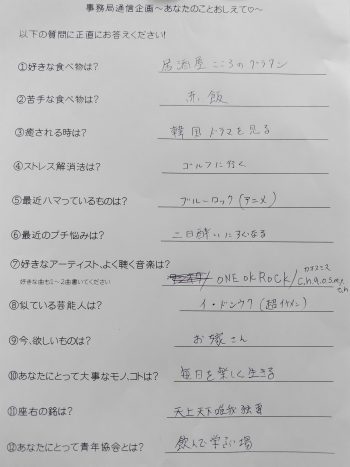 事務局通信企画～あなたのことおしえて♡～
以下の質問に正直にお答えください!
①好きな食べ物は? 居酒屋こころのグラタン
②苦手な食べ物は? 赤飯
③癒される時は? 韓国ドラマを見る
④ストレス解消法は? ゴルフに行く
⑤最近ハマっているものは? ブルーロック(アニメ)
⑥最近のプチ悩みは? 二日酔いにすぐなる
⑦好きなアーティスト、よく聴く音楽は?
好きな曲も1～2曲書いてください / ONE OK ROCK /
⑧似ている芸能人は? イ・ドンウク(超イケメン)
⑨今、欲しいものは? お嫁さん
⑩あなたにとって大事なモノ、コトは? 毎日を楽しく生きる
⑪座右の銘は? 天上天下唯我独尊
⑫あなたにとって青年協会とは? 飲んで学ぶ場